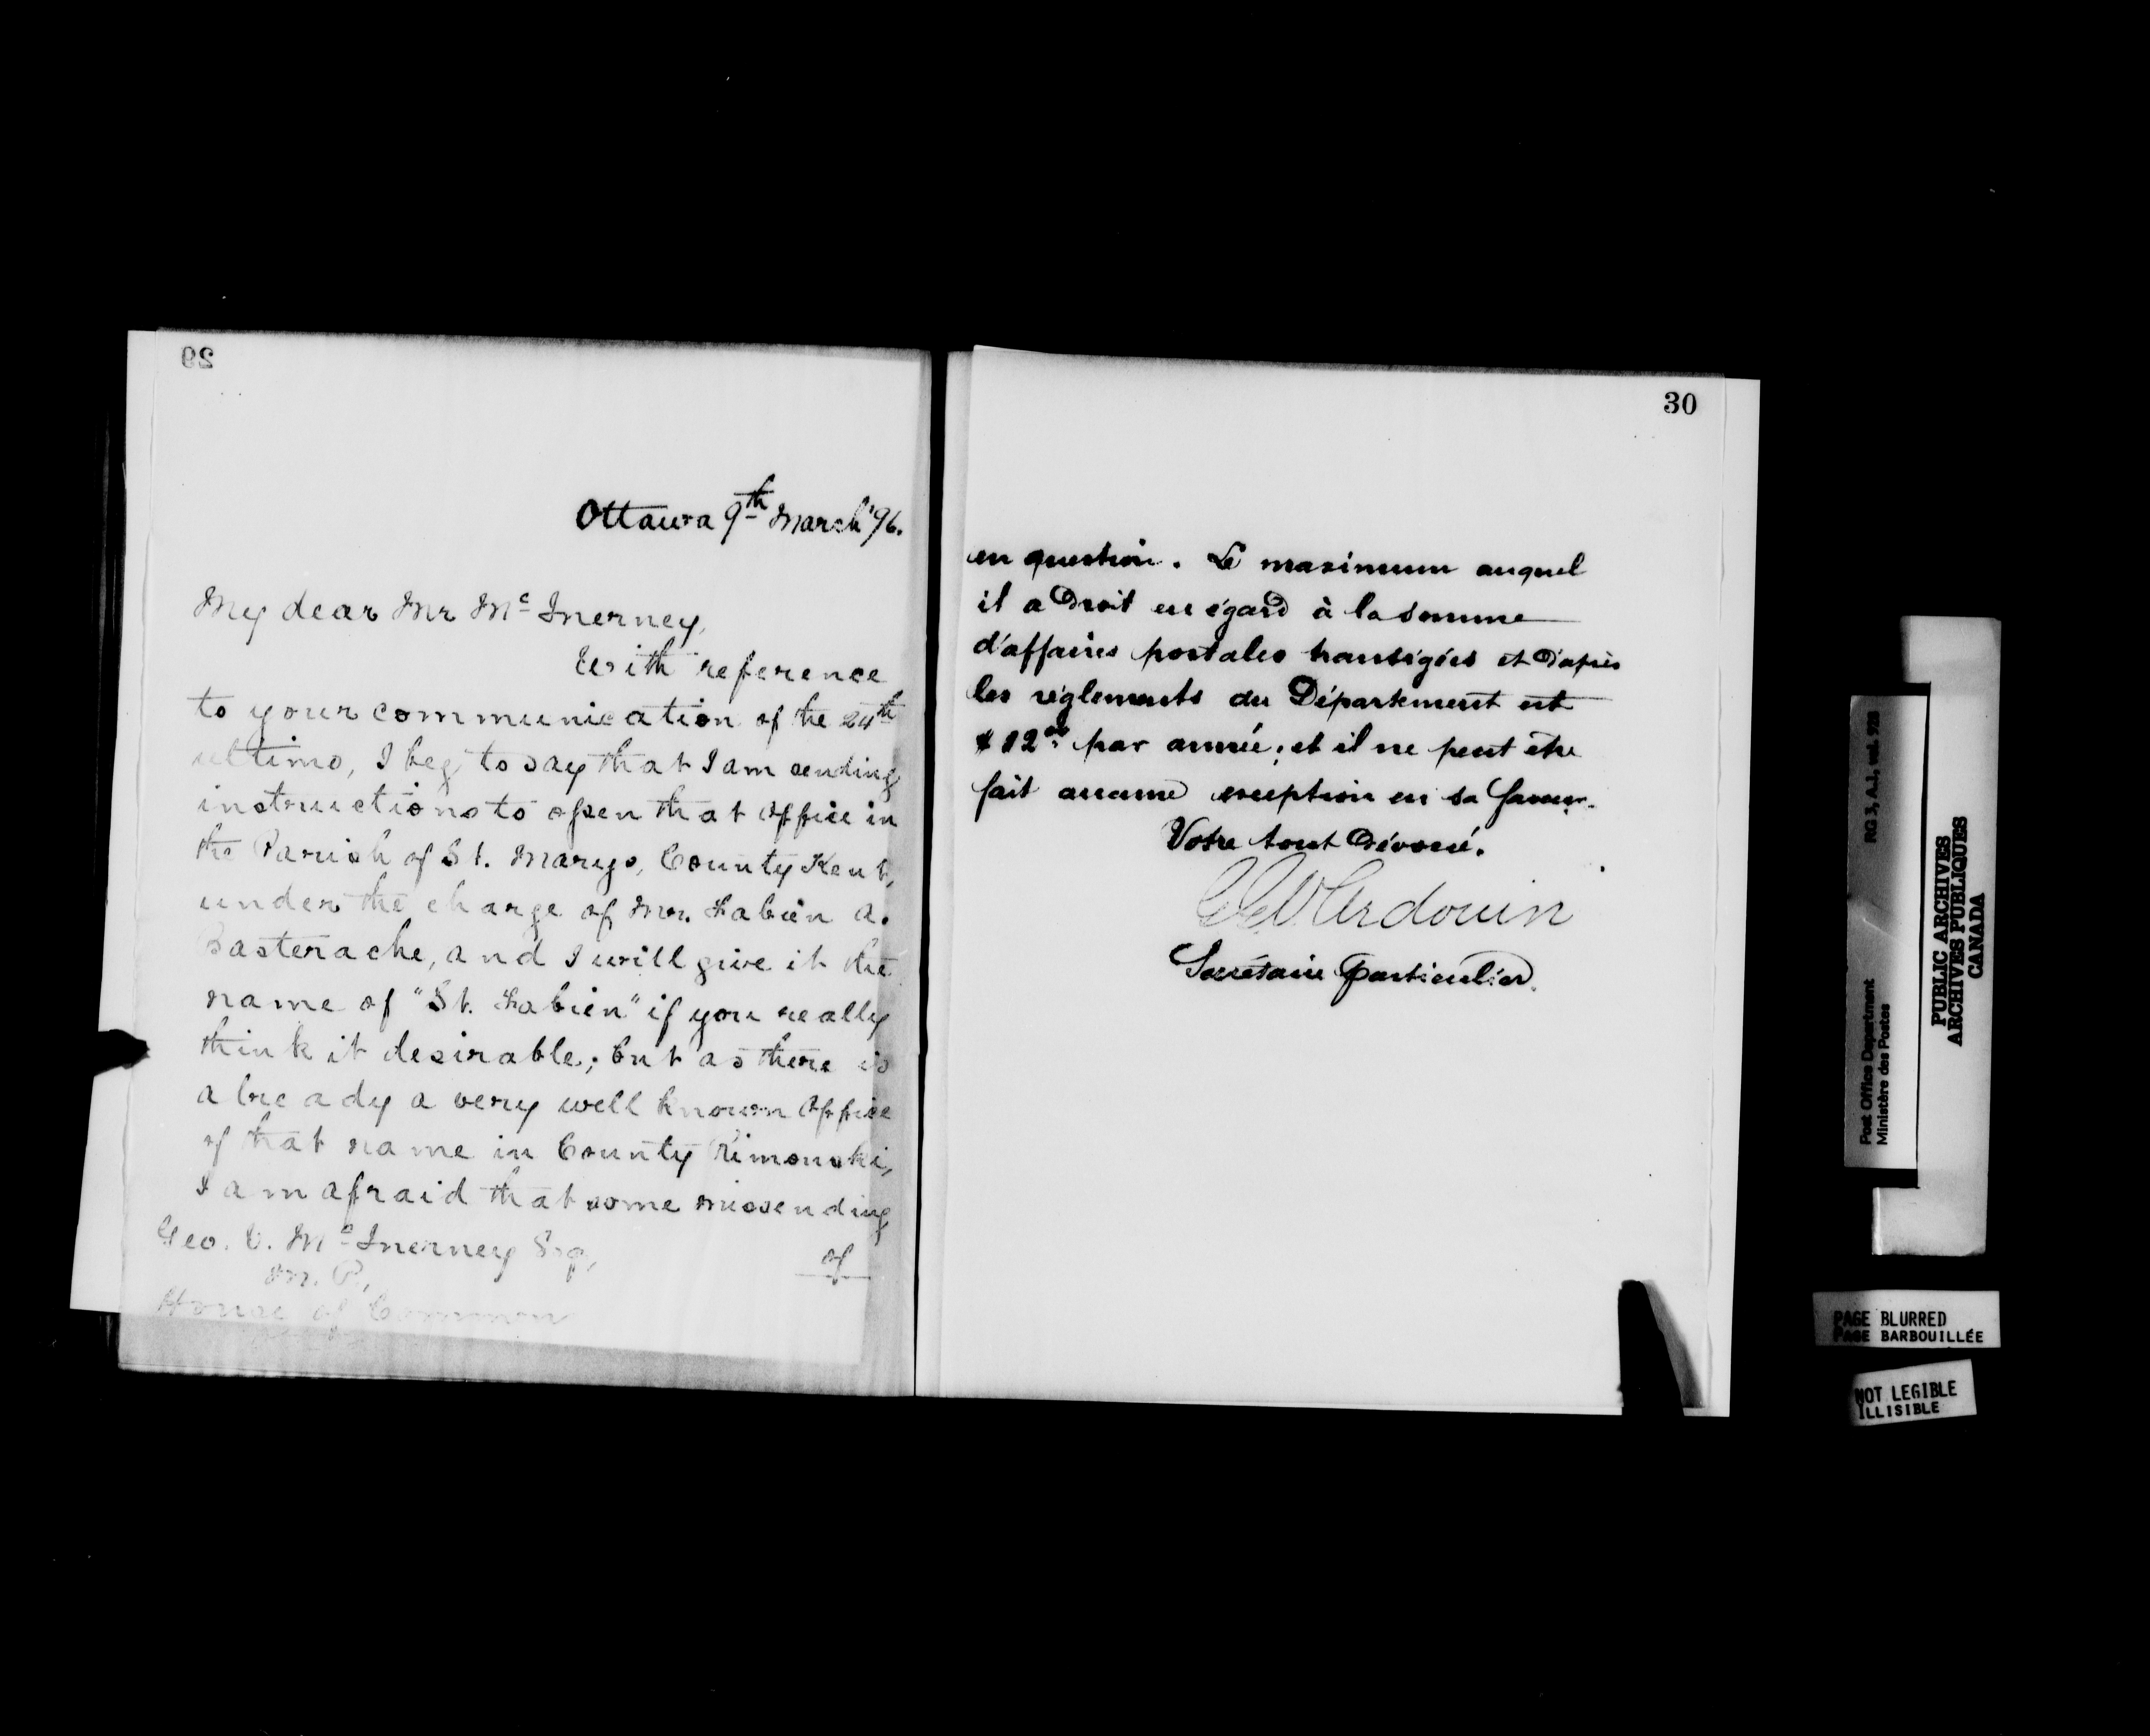 29
Ottawa 9th March '96.
My dear Mr Mc Inerney,
With reference
to your communication of the 24th
ultimo, I beg to say that I am sending
instructions to open that Office in
the Parish of St. Marys, County Kent,
under the charge of Mr. Fabien A.
Basterache, and I will give it the
name of "St. Fabien" if you really
think it desirable; but as there is
already a very well known Office
of that name in County Rimouski,
I am afraid that some missending
of
Geo. V. Mc Inerney Esq,
M. P.,
House of Commons
30
en question. Le maximum auquel
il a droit eu égard à la somme
d'affaires postales transigées et d'après
les règlements du Département est
$12.00 par année; et il ne peut être
fait aucune exception en sa faveur.
Votre tout dévoué.
Ardouin
Secrétaire Particulier.
RG 3, A.1, vol. 928
Post Office Department
Ministère des Postes
PUBLIC ARCHIVES
ARCHIVES PUBLIQUES
CANADA
PAGE BLURRED
PAGE BARBOUILLÉE
NOT LEGIBLE
ILLISIBLE